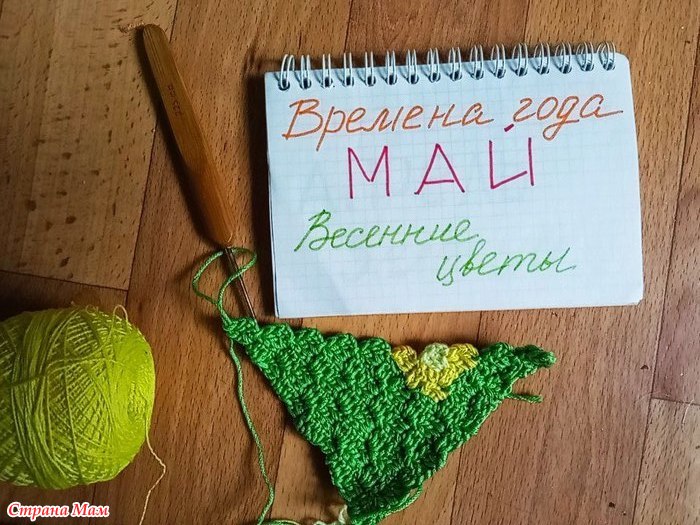 Времена года
МАЙ
Весенние
цветы
Страна Мам